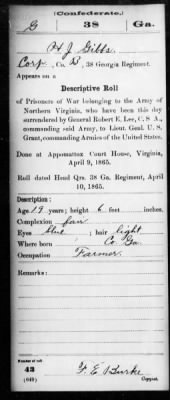 (Confederate.)
G 38 Ga.
H J Gibbs
Corp, Co. B, 38 Georgia Regiment.
Appears on a
Descriptive Roll
of Prisoners of War belonging to the Army of
Northern Virginia, who have been this day
surrendered by General Robert E. Lee, C. S. A.,
commanding said Army, to Lieut. Genl. U. S.
Grant, commanding Armies of the United States.
Done at Appomattox Court House, Virginia,
April 9, 1865.
Roll dated Head Qrs. 38 Ga. Regiment, April
10, 1865.
Description:
Age 19 years; height 6 feet inches.
Complexion fair
Eyes blue; hair light
Where born Co Ga.
Occupation Farmer.
Remarks:
Number of roll
43
(649)
F. E. Burke
Copyist.